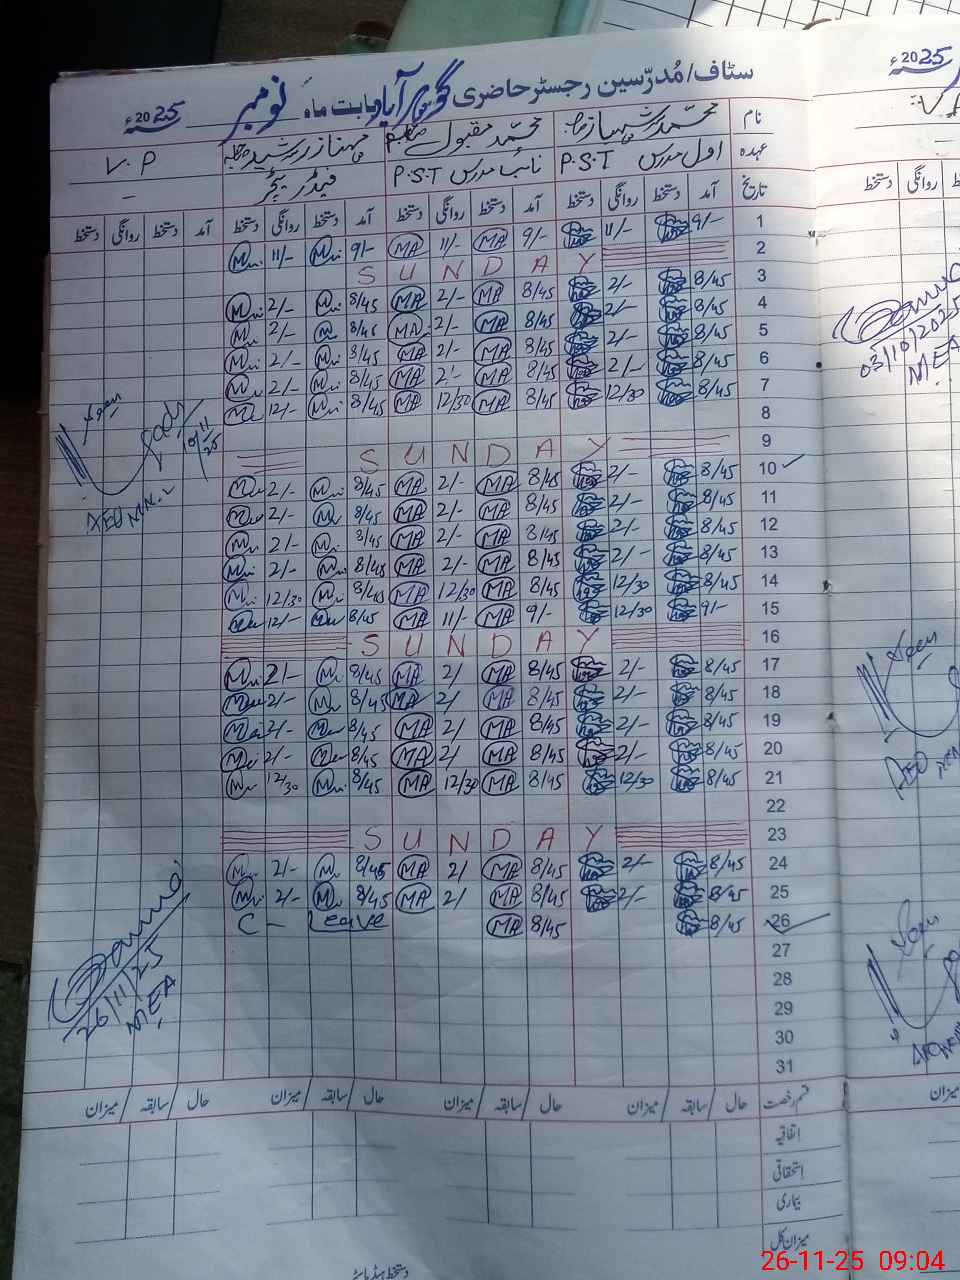 سٹاف/مُدرّسین رجسٹر حاضری گوہر آباد بابت ماہ نومبر 2025ء
نام محمد شہباز محمد مقبول مہناز رشید V.P
عہدہ اول مدرس P.S.T نائب مدرس P.S.T –
تاریخ آمد دستخط روانگی دستخط آمد دستخط روانگی دستخط آمد دستخط روانگی دستخط آمد دستخط روانگی دستخط
1 9/- 11/- 9/- MA 11/- MA 9/- 11/-
2 SUNDAY
3 8/45 2/- 8/45 MA 2/- MA 8/45 2/-
4 8/45 2/- 8/45 MA 2/- MA 8/45 2/-
5 8/45 2/- 8/45 MA 2/- MA 8/45 2/-
6 8/45 2/- 8/45 MA 2/- MA 8/45 2/-
7 8/45 12/30 8/45 MA 12/30 MA 8/45 12/-
8
9 SUNDAY
10 8/45 2/- 8/45 MA 2/- MA 8/45 2/-
11 8/45 2/- 8/45 MA 2/- MA 8/45 2/-
12 8/45 2/- 8/45 MA 2/- MA 8/45 2/-
13 8/45 2/- 8/45 MA 2/- MA 8/45 2/-
14 8/45 12/30 8/45 MA 12/30 MA 8/45 12/30
15 9/- 12/30 9/- MA 11/- MA 8/45 12/-
16 SUNDAY
17 8/45 2/- 8/45 MA 2/ MA 8/45 2/-
18 8/45 2/- 8/45 MA 2/ MA 8/45 2/-
19 8/45 2/- 8/45 MA 2/ MA 8/45 2/-
20 8/45 2/- 8/45 MA 2/ MA 8/45 2/-
21 8/45 12/30 8/45 MA 12/30 MA 8/45 12/30
22
23 SUNDAY
24 8/45 2/- 8/45 MA 2/ MA 8/45 2/-
25 8/45 2/- 8/45 MA 2/ MA 8/45 2/-
26 8/45 8/45 MA C- Leave
27
28
29
30
31
قسم رخصت حال / سابقہ / میزان حال / سابقہ / میزان حال / سابقہ / میزان حال / سابقہ / میزان
اتفاقیہ
استحقاقی
بیماری
میزان کل
دستخط ہیڈ ماسٹر
Seen
10/11/25
26/11/25
MEA
2025ء
روانگی دستخط
03/10/2025
MEA
Seen
Seen
میزان
26-11-25 09:04